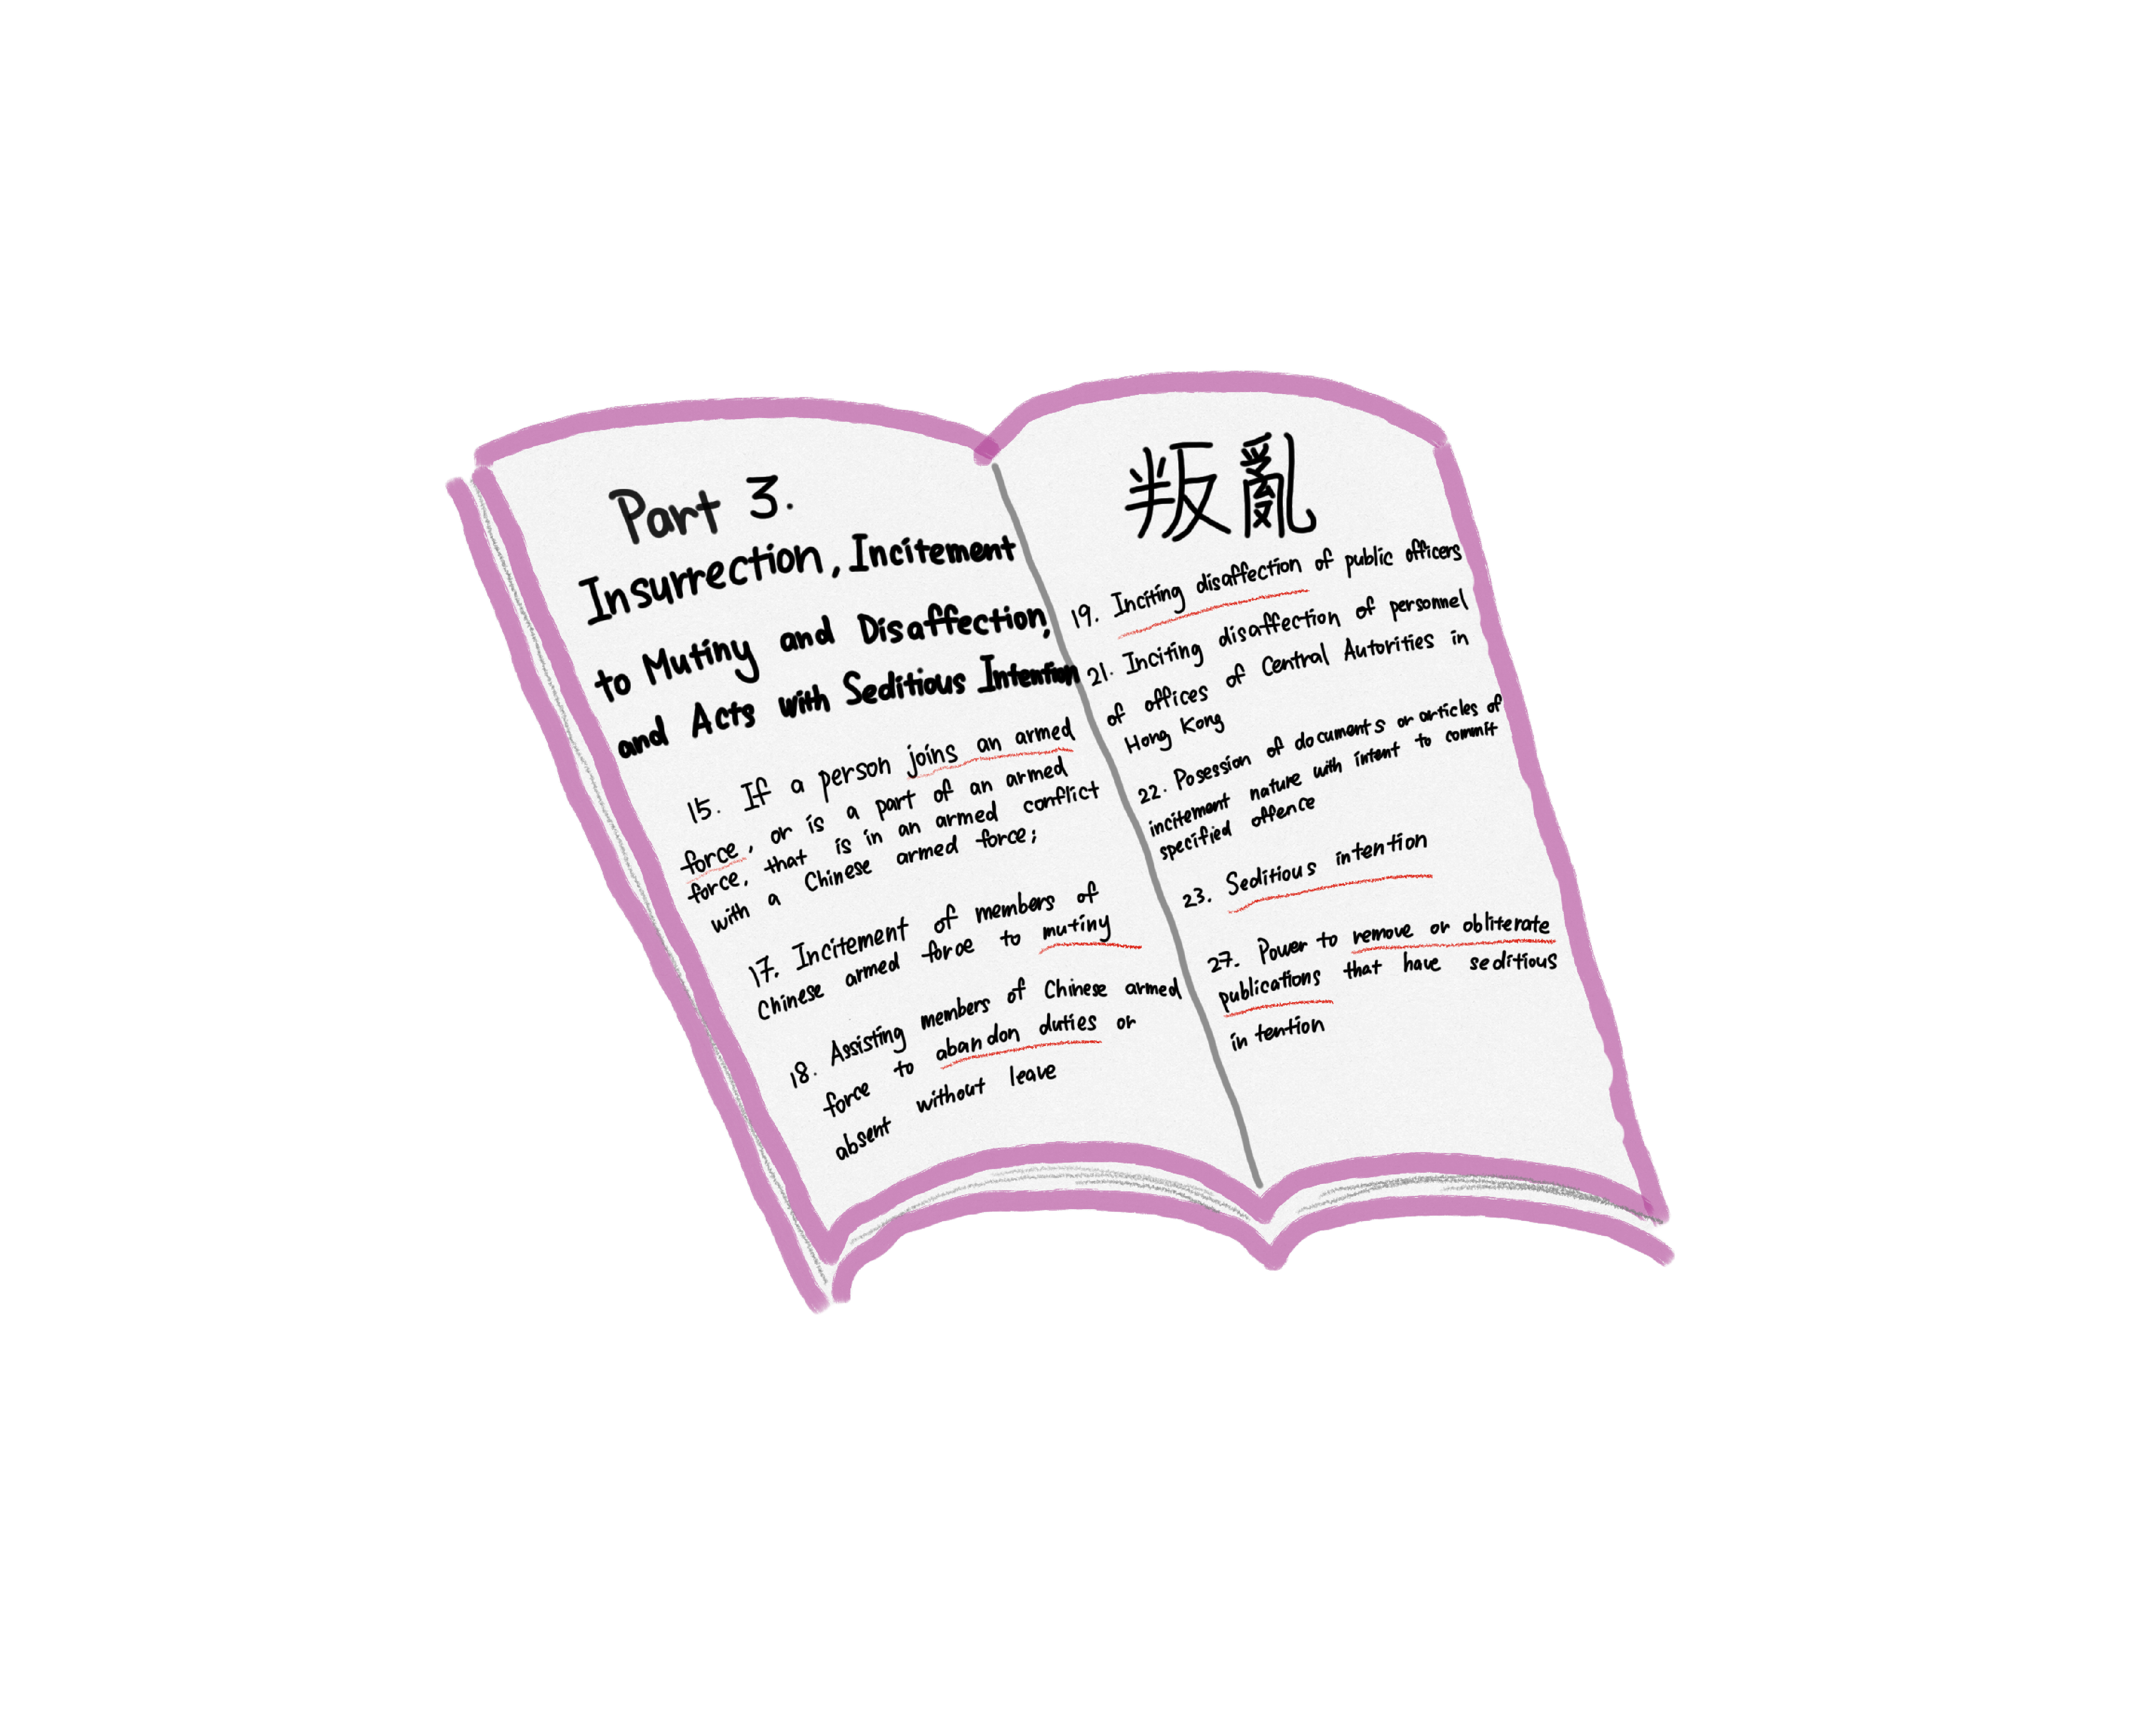 Part 3.
Insurrection, Incitement
to Mutiny and Disaffection,
and Acts with Seditious Intention
15. If a person joins an armed
force, or is a part of an armed
force, that is in an armed conflict
with a Chinese armed force;
17. Incitement of members of
Chinese armed force to mutiny
18. Assisting members of Chinese armed
force to abandon duties or
absent without leave
叛亂
19. Inciting disaffection of public officers
21. Inciting disaffection of personnel
of offices of Central Autorities in
Hong Kong
22. Posession of documents or articles of
incitement nature with intent to commit
specified offence
23. Seditious intention
27. Power to remove or obliterate
publications that have seditious
intention